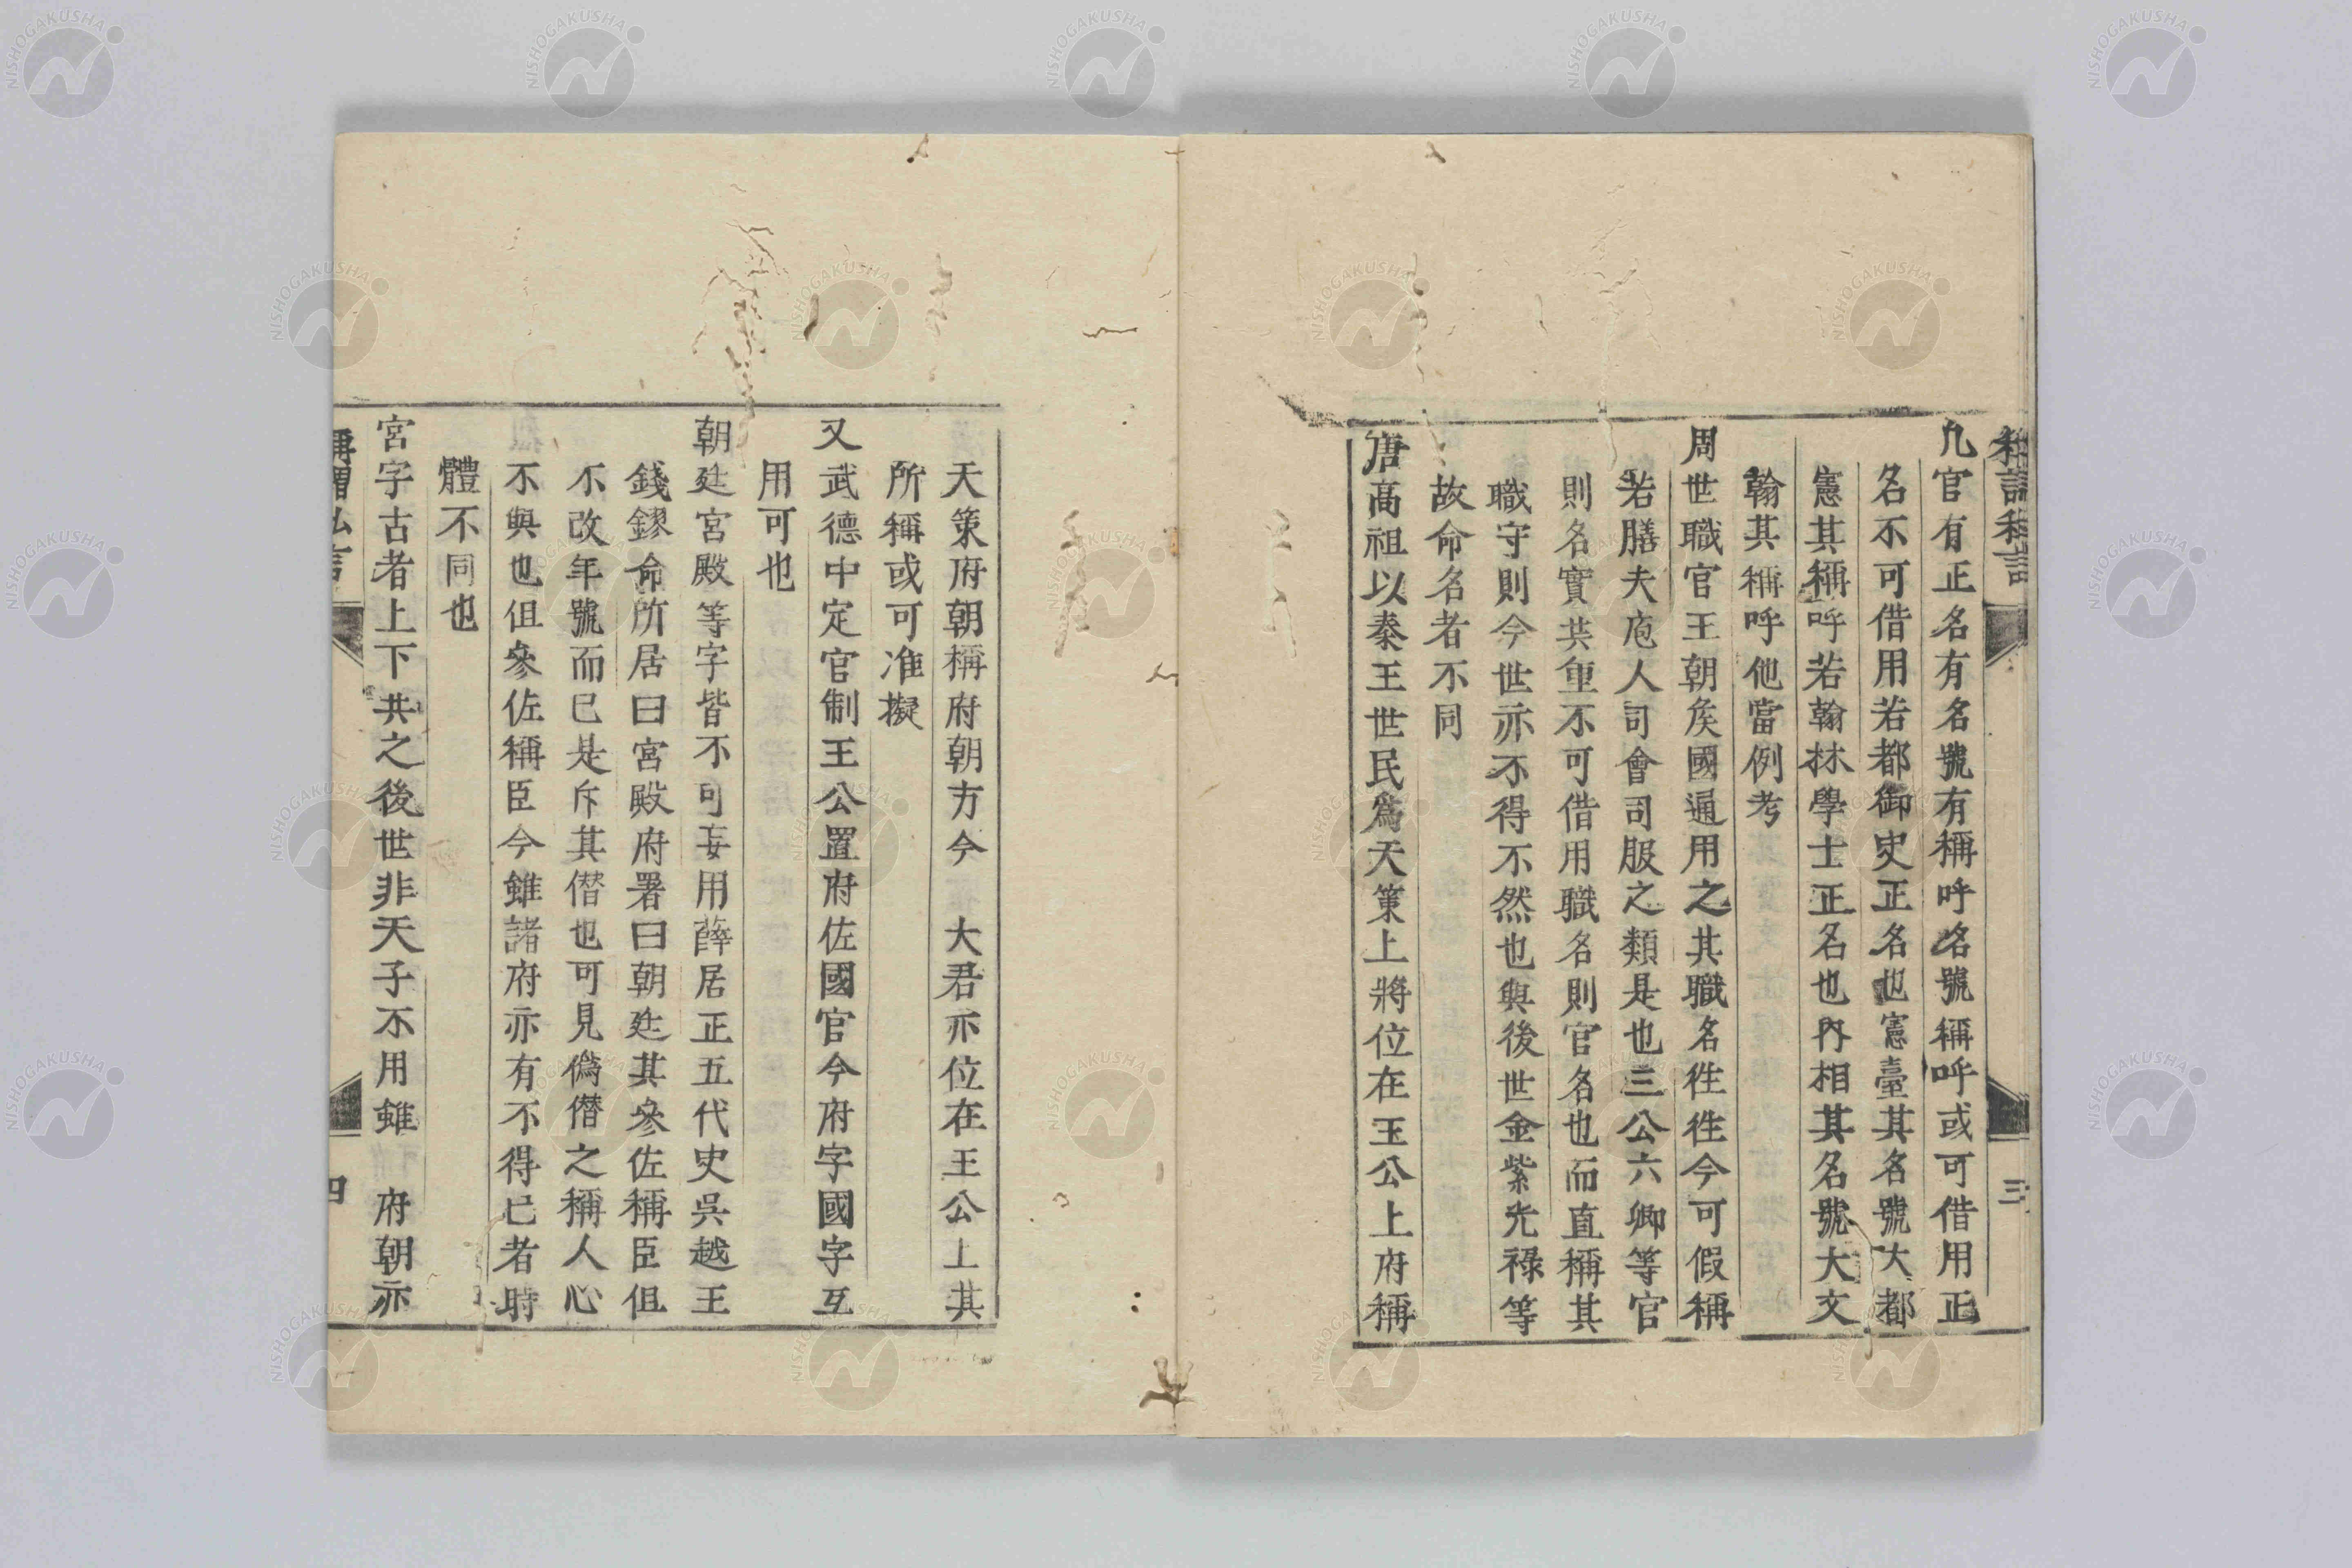 凢官有正名有名號有稱呼名號稱呼或可借用正
名不可借用若都御史正名也憲臺其名號大都
憲其稱呼若翰林學士正名也內相其名號大文
翰其稱呼他當例考
周世職官王朝矦國通用之其職名徃徃今可假稱
若膳夫庖人司會司服之類是也三公六卿等官
則名實共重不可借用職名則官名也而直稱其
職守則今世亦不得不然也與後世金紫光祿等
故命名者不同
唐高祖以秦王世民爲天策上將位在王公上府稱
三
天策府朝稱府朝方今 大君亦位在王公上其
所稱或可准擬
又武德中定官制王公置府佐國官今府字國字互
用可也
朝廷宮殿等字皆不可妄用薛居正五代史吳越王
錢鏐命所居曰宮殿府署曰朝廷其參佐稱臣但
不改年號而已是斥其僭也可見僞僭之稱人心
不與也但參佐稱臣今雖諸府亦有不得已者時
體不同也
宮字古者上下共之後世非天子不用雖 府朝亦
稱謂私言
四
NISHOGAKUSHA